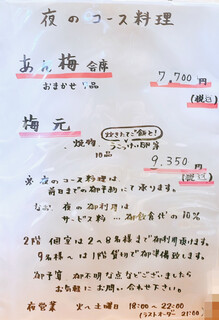 夜のコース料理
梅 会席 7,700円
おまかせ 品 (税込)
梅元 炊きたてご飯と!
焼物
10品 9,350円
(税込)
夜のコース料理は、
前日までの御予約にて承ります。
なお 夜の御利用は
サービス料 御飲食代の10%
2階 個室は2〜8名様まで御利用頂けます。
9名様〜は1階貸切で御準備致します。
御予算 御不明な点などございましたら
お気軽に お問い合せ下さい。
夜営業 火〜土曜日 18:00〜22:00
(ラストオーダー 21:00)